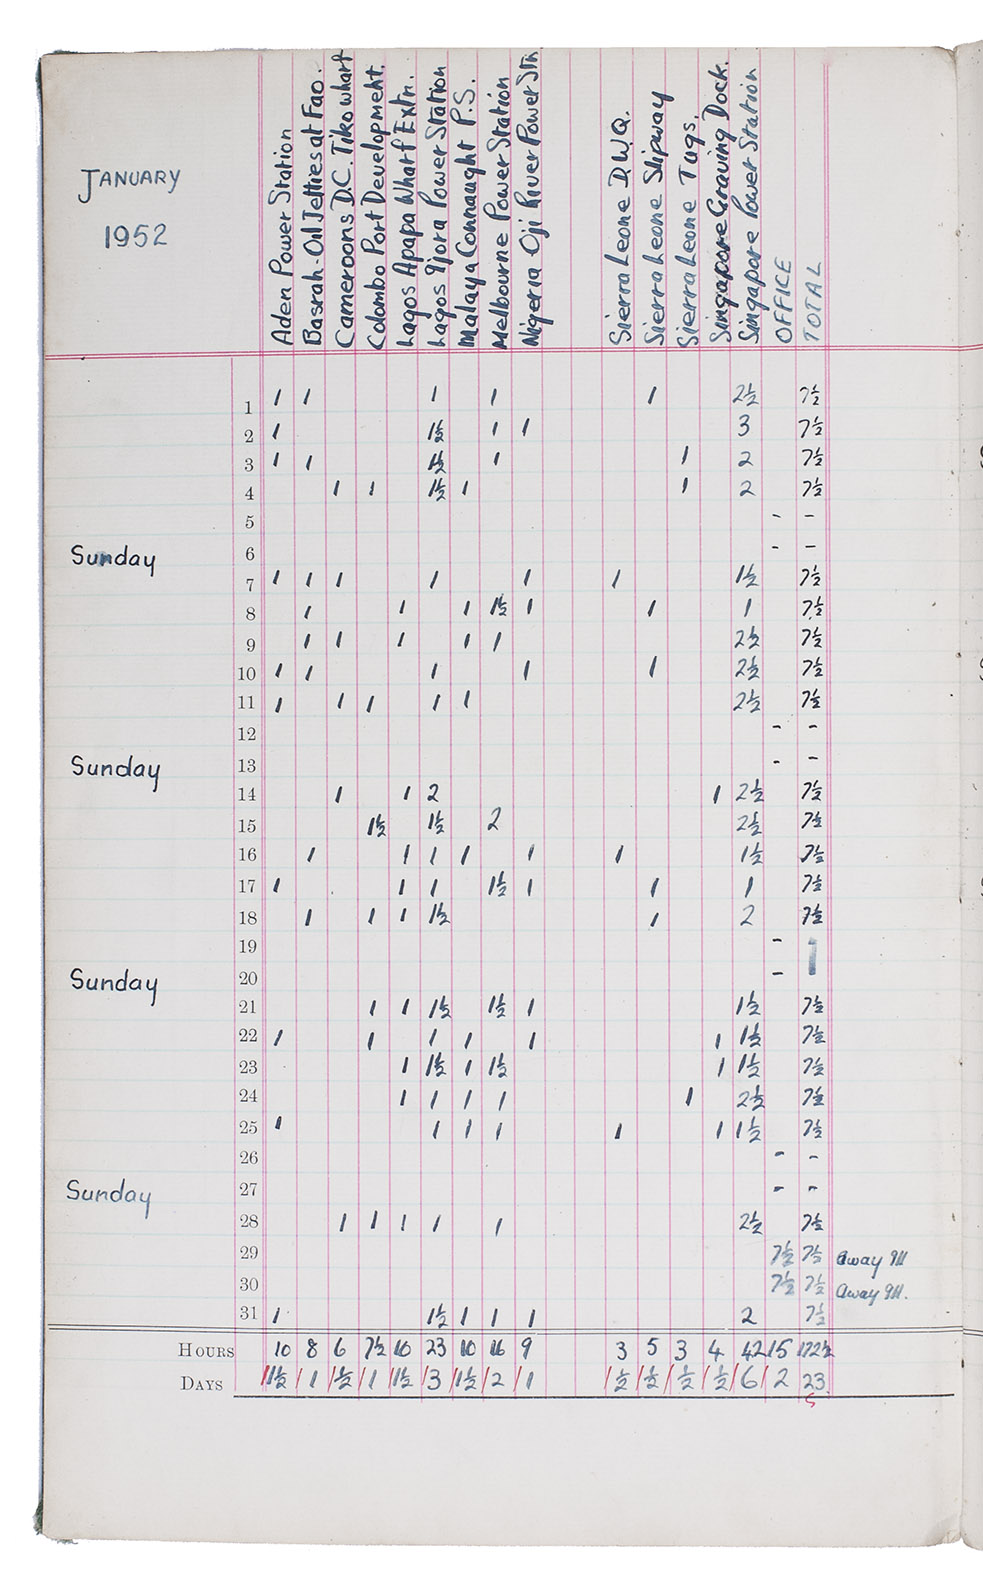 JANUARY
1952
Aden Power Station
Basrah. Oil Jetties at Fao.
Cameroons D.C. Tiko wharf
Colombo Port Development.
Lagos Apapa Wharf Extn.
Lagos Ijora Power Station
Malaya Connaught P.S.
Melbourne Power Station
Nigeria Oji River Power Stn
Sierra Leone D.W.Q.
Sierra Leone Slipway
Sierra Leone Tugs.
Singapore Graving Dock.
Singapore Power Station
OFFICE
TOTAL
1 1 1 1 1 1 2½ 7½
2 1 1½ 1 1 3 7½
3 1 1 1½ 1 1 2 7½
4 1 1 1½ 1 1 2 7½
5 - -
Sunday 6 - -
7 1 1 1 1 1 1 1½ 7½
8 1 1 1 1½ 1 1 1 7½
9 1 1 1 1 1 2½ 7½
10 1 1 1 1 1 2½ 7½
11 1 1 1 1 1 2½ 7½
12 - -
Sunday 13 - -
14 1 1 2 1 2½ 7½
15 1½ 1½ 2 2½ 7½
16 1 1 1 1 1 1 1½ 7½
17 1 1 1 1½ 1 1 1 7½
18 1 1 1 1½ 1 2 7½
19 -
Sunday 20 -
21 1 1 1½ 1½ 1 1½ 7½
22 1 1 1 1 1 1 1½ 7½
23 1 1½ 1 1½ 1 1½ 7½
24 1 1 1 1 1 2½ 7½
25 1 1 1 1 1 1 1½ 7½
26 - -
Sunday 27 - -
28 1 1 1 1 1 2½ 7½
29 7½ 7½ away Ill
30 7½ 7½ away Ill.
31 1 1½ 1 1 1 2 7½
HOURS 10 8 6 7½ 10 23 10 16 9 3 5 3 4 42 15 172½
DAYS /1½ /1 /½ /1 /1½ /3 /1½ /2 /1 /½ /½ /½ /½ /6 /2 23